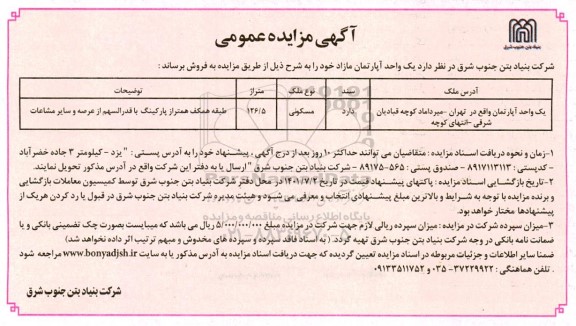 آگهی مزایده عمومی
بنیاد بتن جنوب شرق
شرکت بنیاد بتن جنوب شرق در نظر دارد یک واحد آپارتمان مازاد خود را به شرح ذیل از طریق مزایده به فروش برساند :
آدرس ملک سند نوع ملک متراژ توضیحات
یک واحد آپارتمان واقع در تهران -میرداماد کوچه قبادیان شرقی -انتهای کوچه دارد مسکونی ۱۲۶/۵ طبقه همکف همتراز پارکینگ با قدرالسهم از عرصه و سایر مشاعات
۱-زمان و نحوه دریافت اسناد مزایده : متقاضیان می توانند حداکثر ۱۰ روز بعد از درج آگهی ، پیشنهاد خود را به آدرس پستی : " یزد - کیلومتر ۳ جاده خضر آباد
- کدپستی : ۸۹۱۷۱۱۳۱۱۳ - صندوق پستی : ۵۶۵-۸۹۱۷۵ - شرکت بنیاد بتن جنوب شرق " ارسال یا به دفتر این شرکت واقع در آدرس مذکور تحویل نمایند.
۲-تاریخ بازگشایی اسناد مزایده : پاکتهای پیشنهاد قیمت در تاریخ ۱۴۰۱/۷/۲ در محل دفتر شرکت بنیاد بتن جنوب شرق توسط کمیسیون معاملات بازگشایی
و برنده مزایده با توجه به شرایط و بالاترین مبلغ پیشنهادی انتخاب و معرفی می شود و هیئت مدیره شرکت بنیاد بتن جنوب شرق در قبول یا رد کردن هریک از
پیشنهادها مختار خواهد بود.
۳-میزان سپرده شرکت در مزایده : میزان سپرده ریالی لازم جهت شرکت در مزایده مبلغ ۵/۰۰۰/۰۰۰/۰۰۰ ریال می باشد که میبایست بصورت چک تضمینی بانکی و یا
ضمانت نامه بانکی در وجه شرکت بنیاد بتن جنوب شرق تهیه گردد. ( به اسناد فاقد سپرده و سپرده های مخدوش و مبهم ترتیب اثر داده نخواهد شد)
ضمنا سایر اطلاعات و جزئیات مربوطه در اسناد مزایده تعیین گردیده که جهت دریافت اسناد مزایده به آدرس مذکور یا به سایت www.bonyadjsh.ir مراجعه شود
. تلفن هماهنگی : ۳۷۲۲۹۹۲۲-۰۳۵ و ۰۹۱۳۳۵۱۱۷۵۲
شرکت بنیاد بتن جنوب شرق